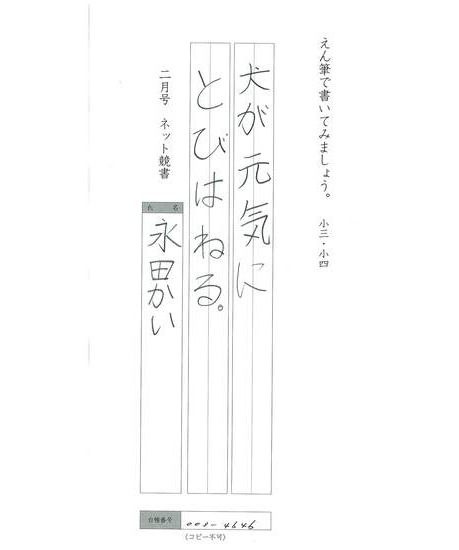 えん筆で書いてみましょう。　小三・小四
犬が元気に
とびはねる。
二月号　ネット競書
氏名
永田かい
台帳番号
008-4646
(コピー不可)